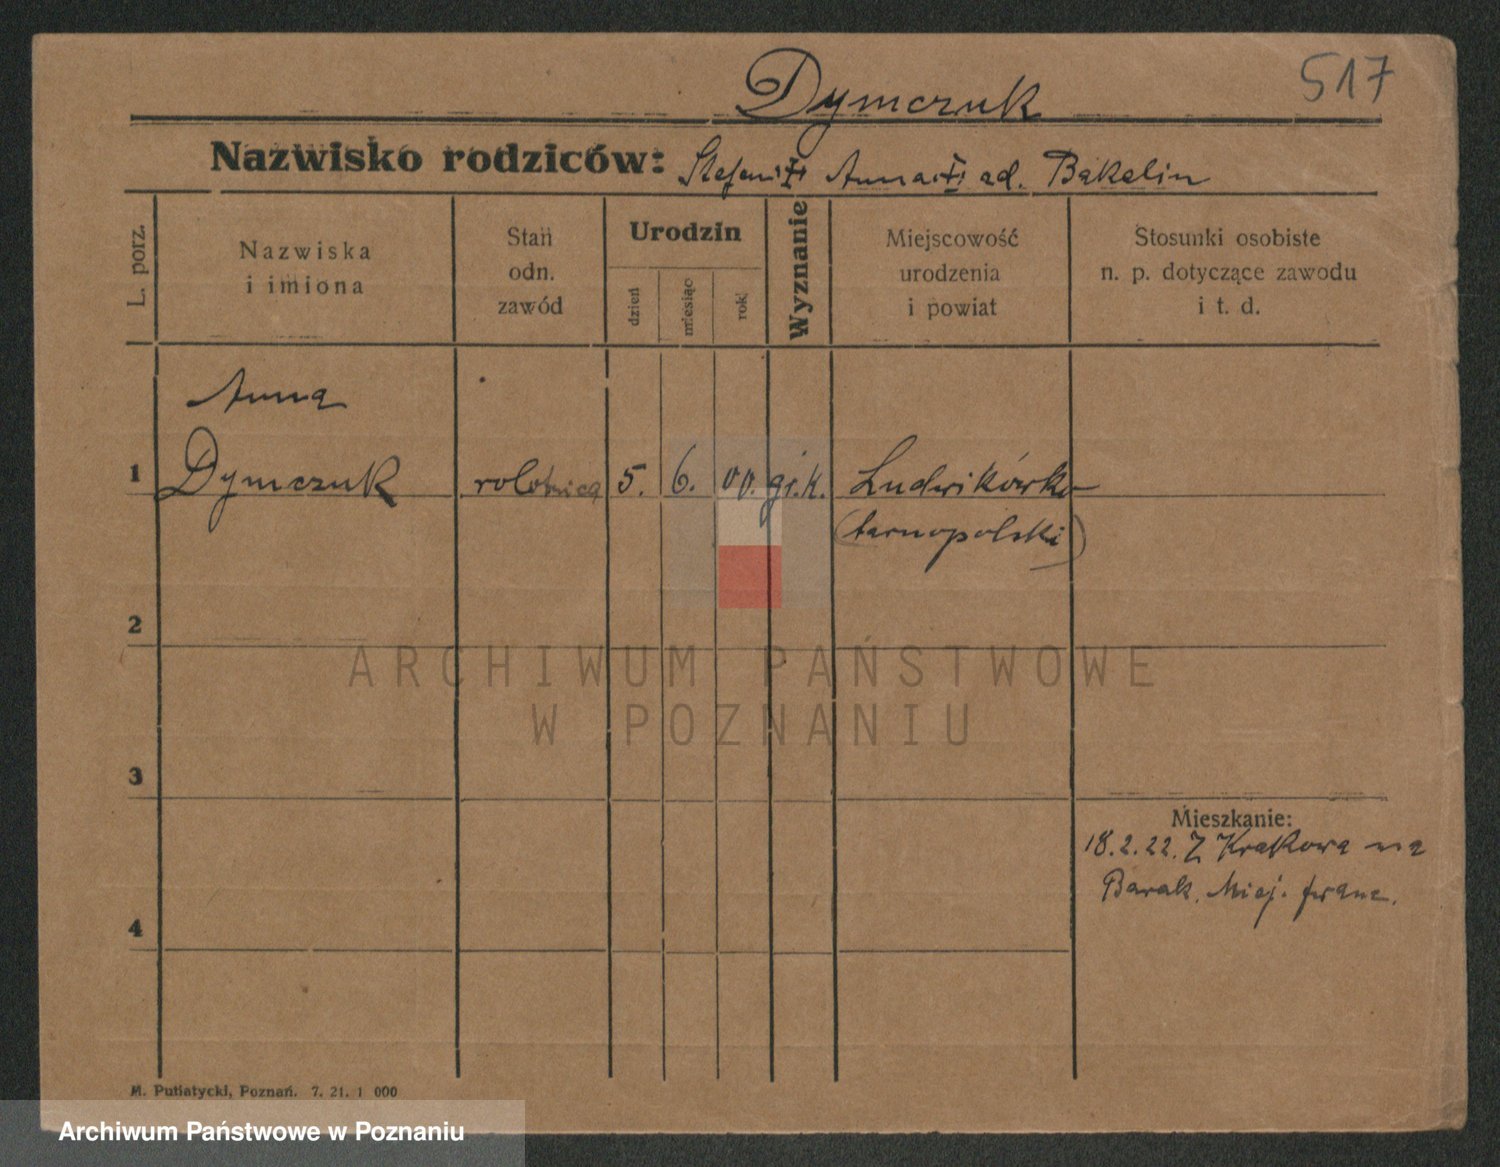 517
Dymczuk
Nazwisko rodziców: Stefan Anna ad. Bakalin
L. porz.
Nazwiska
i imiona
Stan
odn.
zawód
Urodzin
dzień
miesiąc
rok
Wyznanie
Miejscowość
urodzenia
i powiat
Stosunki osobiste
n. p. dotyczące zawodu
i t. d.
Anna
1 Dymczuk robotnica 5. 6. 00. gr.k. Ludwikówka
(tarnopolski)
2
3
4
Mieszkanie:
18.2.22. Z Krakowa na
Barak. Miej. franc.
M. Putiatycki, Poznań. 7. 21. 1 000
ARCHIWUM PAŃSTWOWE
W POZNANIU
Archiwum Państwowe w Poznaniu